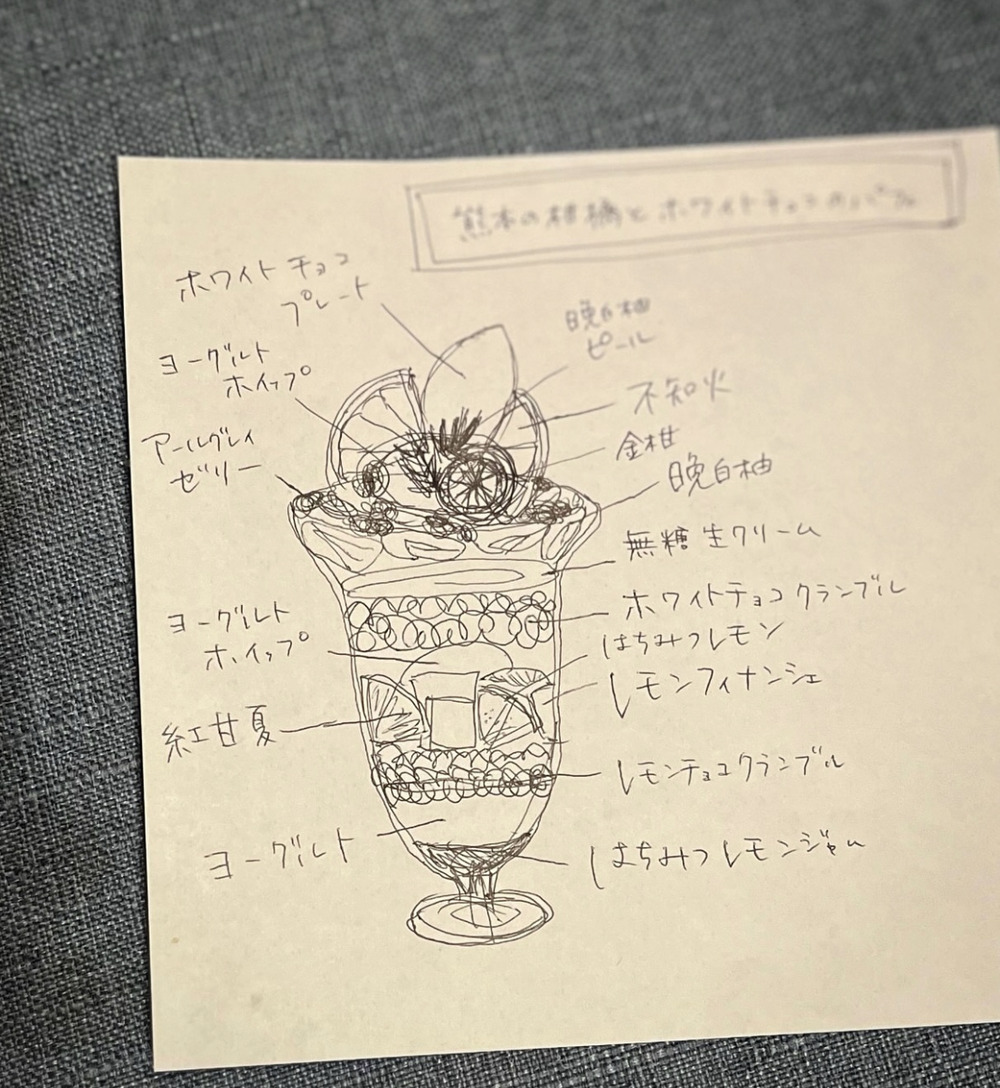 熊本の柑橘とホワイトチョコのパフェ
ホワイトチョコ
プレート
ヨーグルト
ホイップ
アールグレイ
ゼリー
ヨーグルト
ホイップ
紅甘夏
ヨーグルト
晩白柚
ピール
不知火
金柑
晩白柚
無糖生クリーム
ホワイトチョコクランブル
はちみつレモン
レモンフィナンシェ
レモンチョコクランブル
はちみつレモンジャム